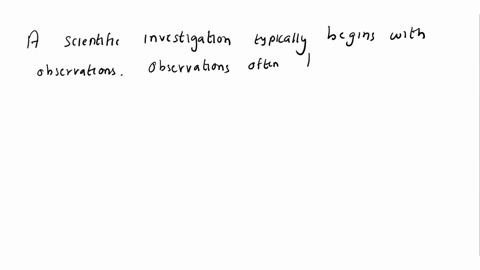 A scientific investigation typically begins with
observations. Observations often l